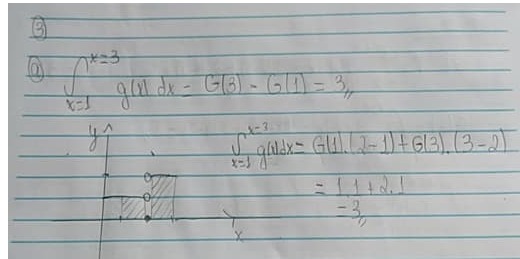 ③
ⓐ ∫ x=3 x=1 g(x) dx = G(3) - G(1) = 3,,
y
∫ x=3 x=1 g(x)dx = G(1).(2-1)+G(3).(3-2)
= 1.1 + 2.1
= 3,,
x